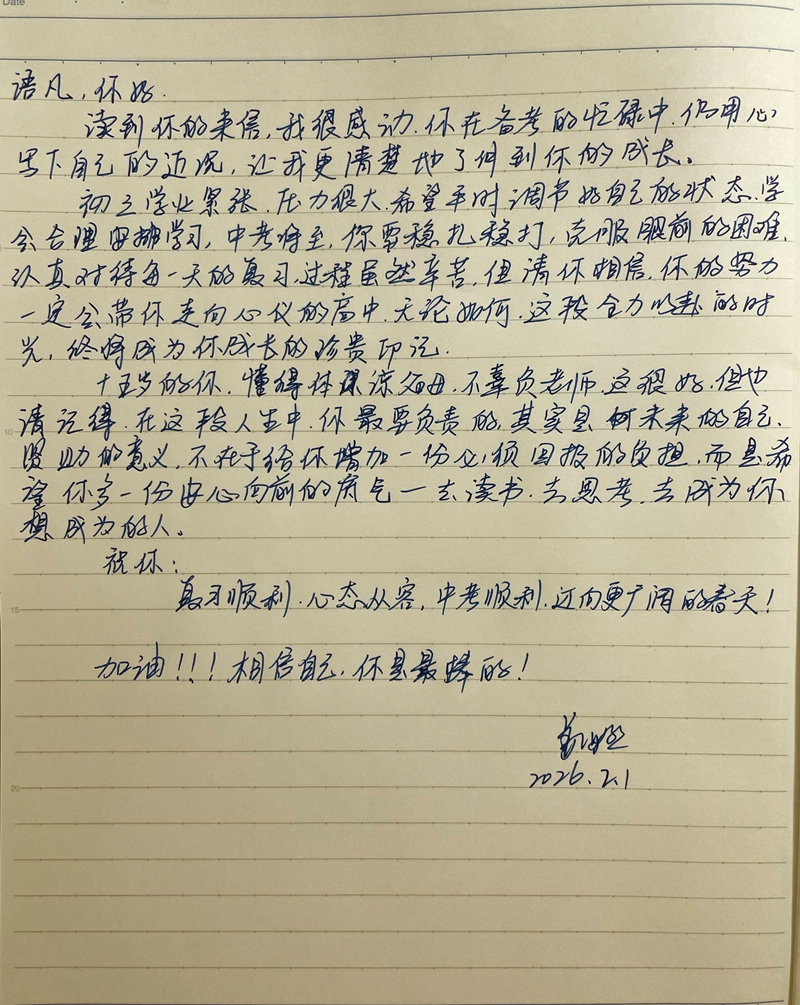 Date
语凡，你好.
读到你的来信，我很感动.你在备考的忙碌中，仍用心
写下自己的近况，让我更清楚地了解到你的成长。
初三学业紧张，压力很大.希望平时调节好自己的状态，学
会合理安排学习，中考将至，你要稳扎稳打，克服眼前的困难，
认真对待每一天的复习.过程虽然辛苦，但请你相信，你的努力
一定会带你走向心仪的高中.无论如何，这段全力以赴的时
光，终将成为你成长的珍贵印记.
十五岁的你，懂得体谅父母，不辜负老师，这很好.但也
10
请记得，在这段人生中，你最要负责的，其实是向未来的自己.
资助的意义，不在于给你增加一份必须回报的负担，而是希
望你多一份安心向前的底气一去读书、去思考、去成为你
想成为的人。
祝你：
15
复习顺利.心态从容，中考顺利.迈向更广阔的春天！
加油！！！相信自己，你是最棒的！
2026.2.1
20